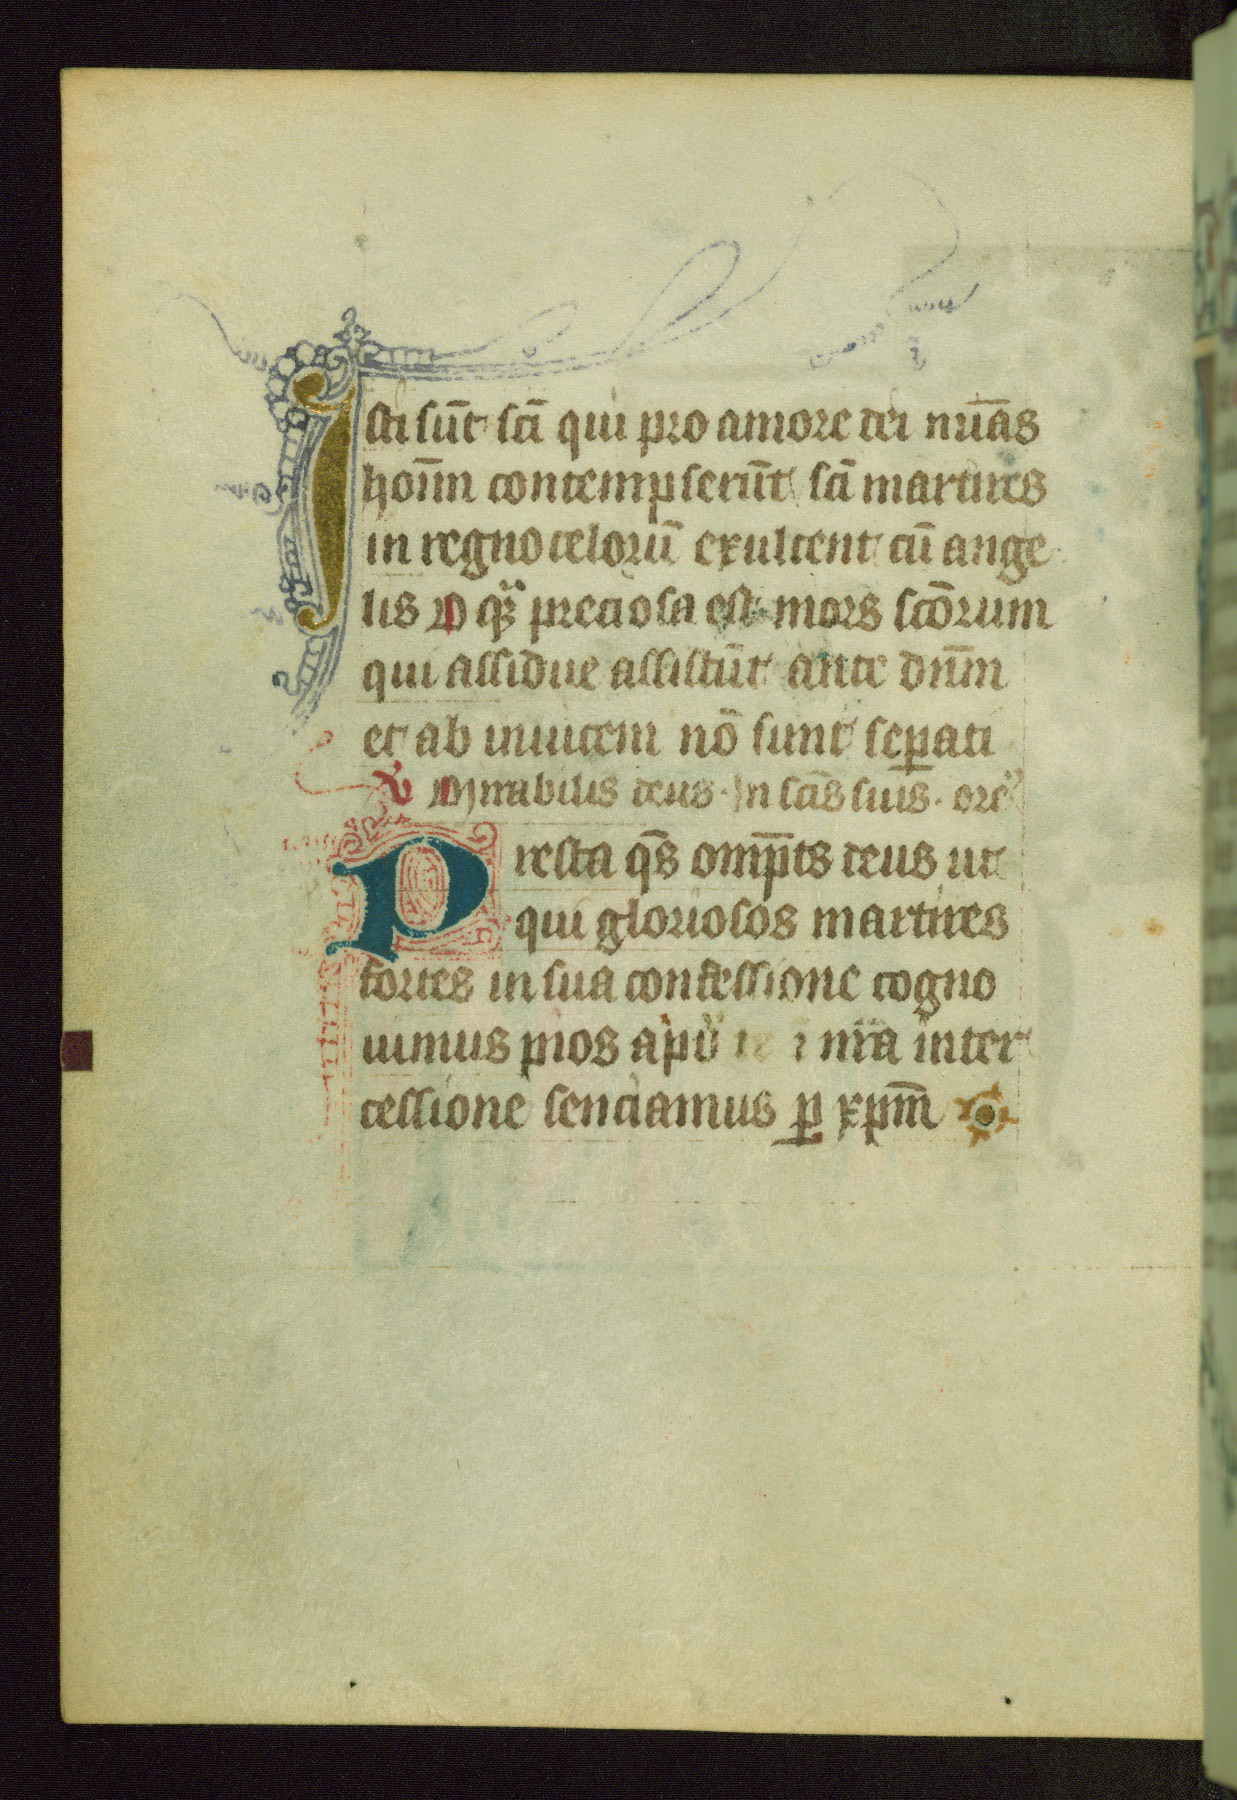 Isti sūt scī qui pro amore dei mīas
hoīm contempserūt scī martires
in regno celorū exultent cū ange
lis O q̄ȝ preciosa est mors scōrum
qui assidue assistūt ante dn̄m
et ab inuicem nō sunt sep̱ati
v̄ Mirabilis deus. In scīs suis. orē
Presta q̄s omp̄ts deus ut
qui gloriosos martires
fortes in sua confessione cogno
uimus pios apū nr̄a inter
cessione senciamus p̱ xp̄m